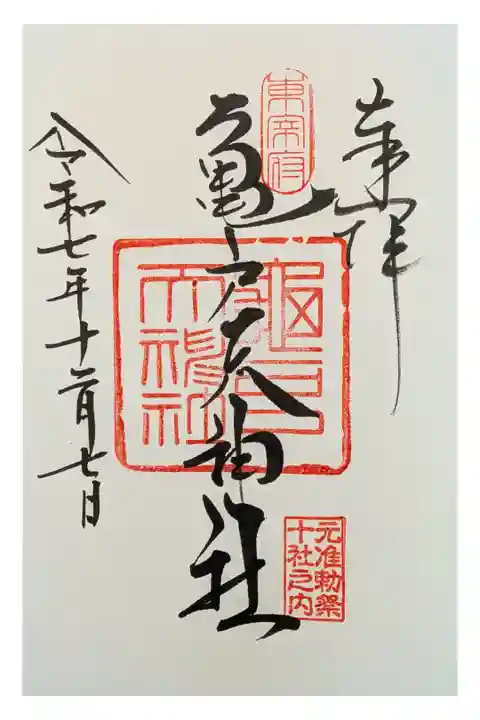 奉拝
東宰府
亀戸天神社
龜戸
天神社
元准勅祭
十社之内
令和七年十二月七日